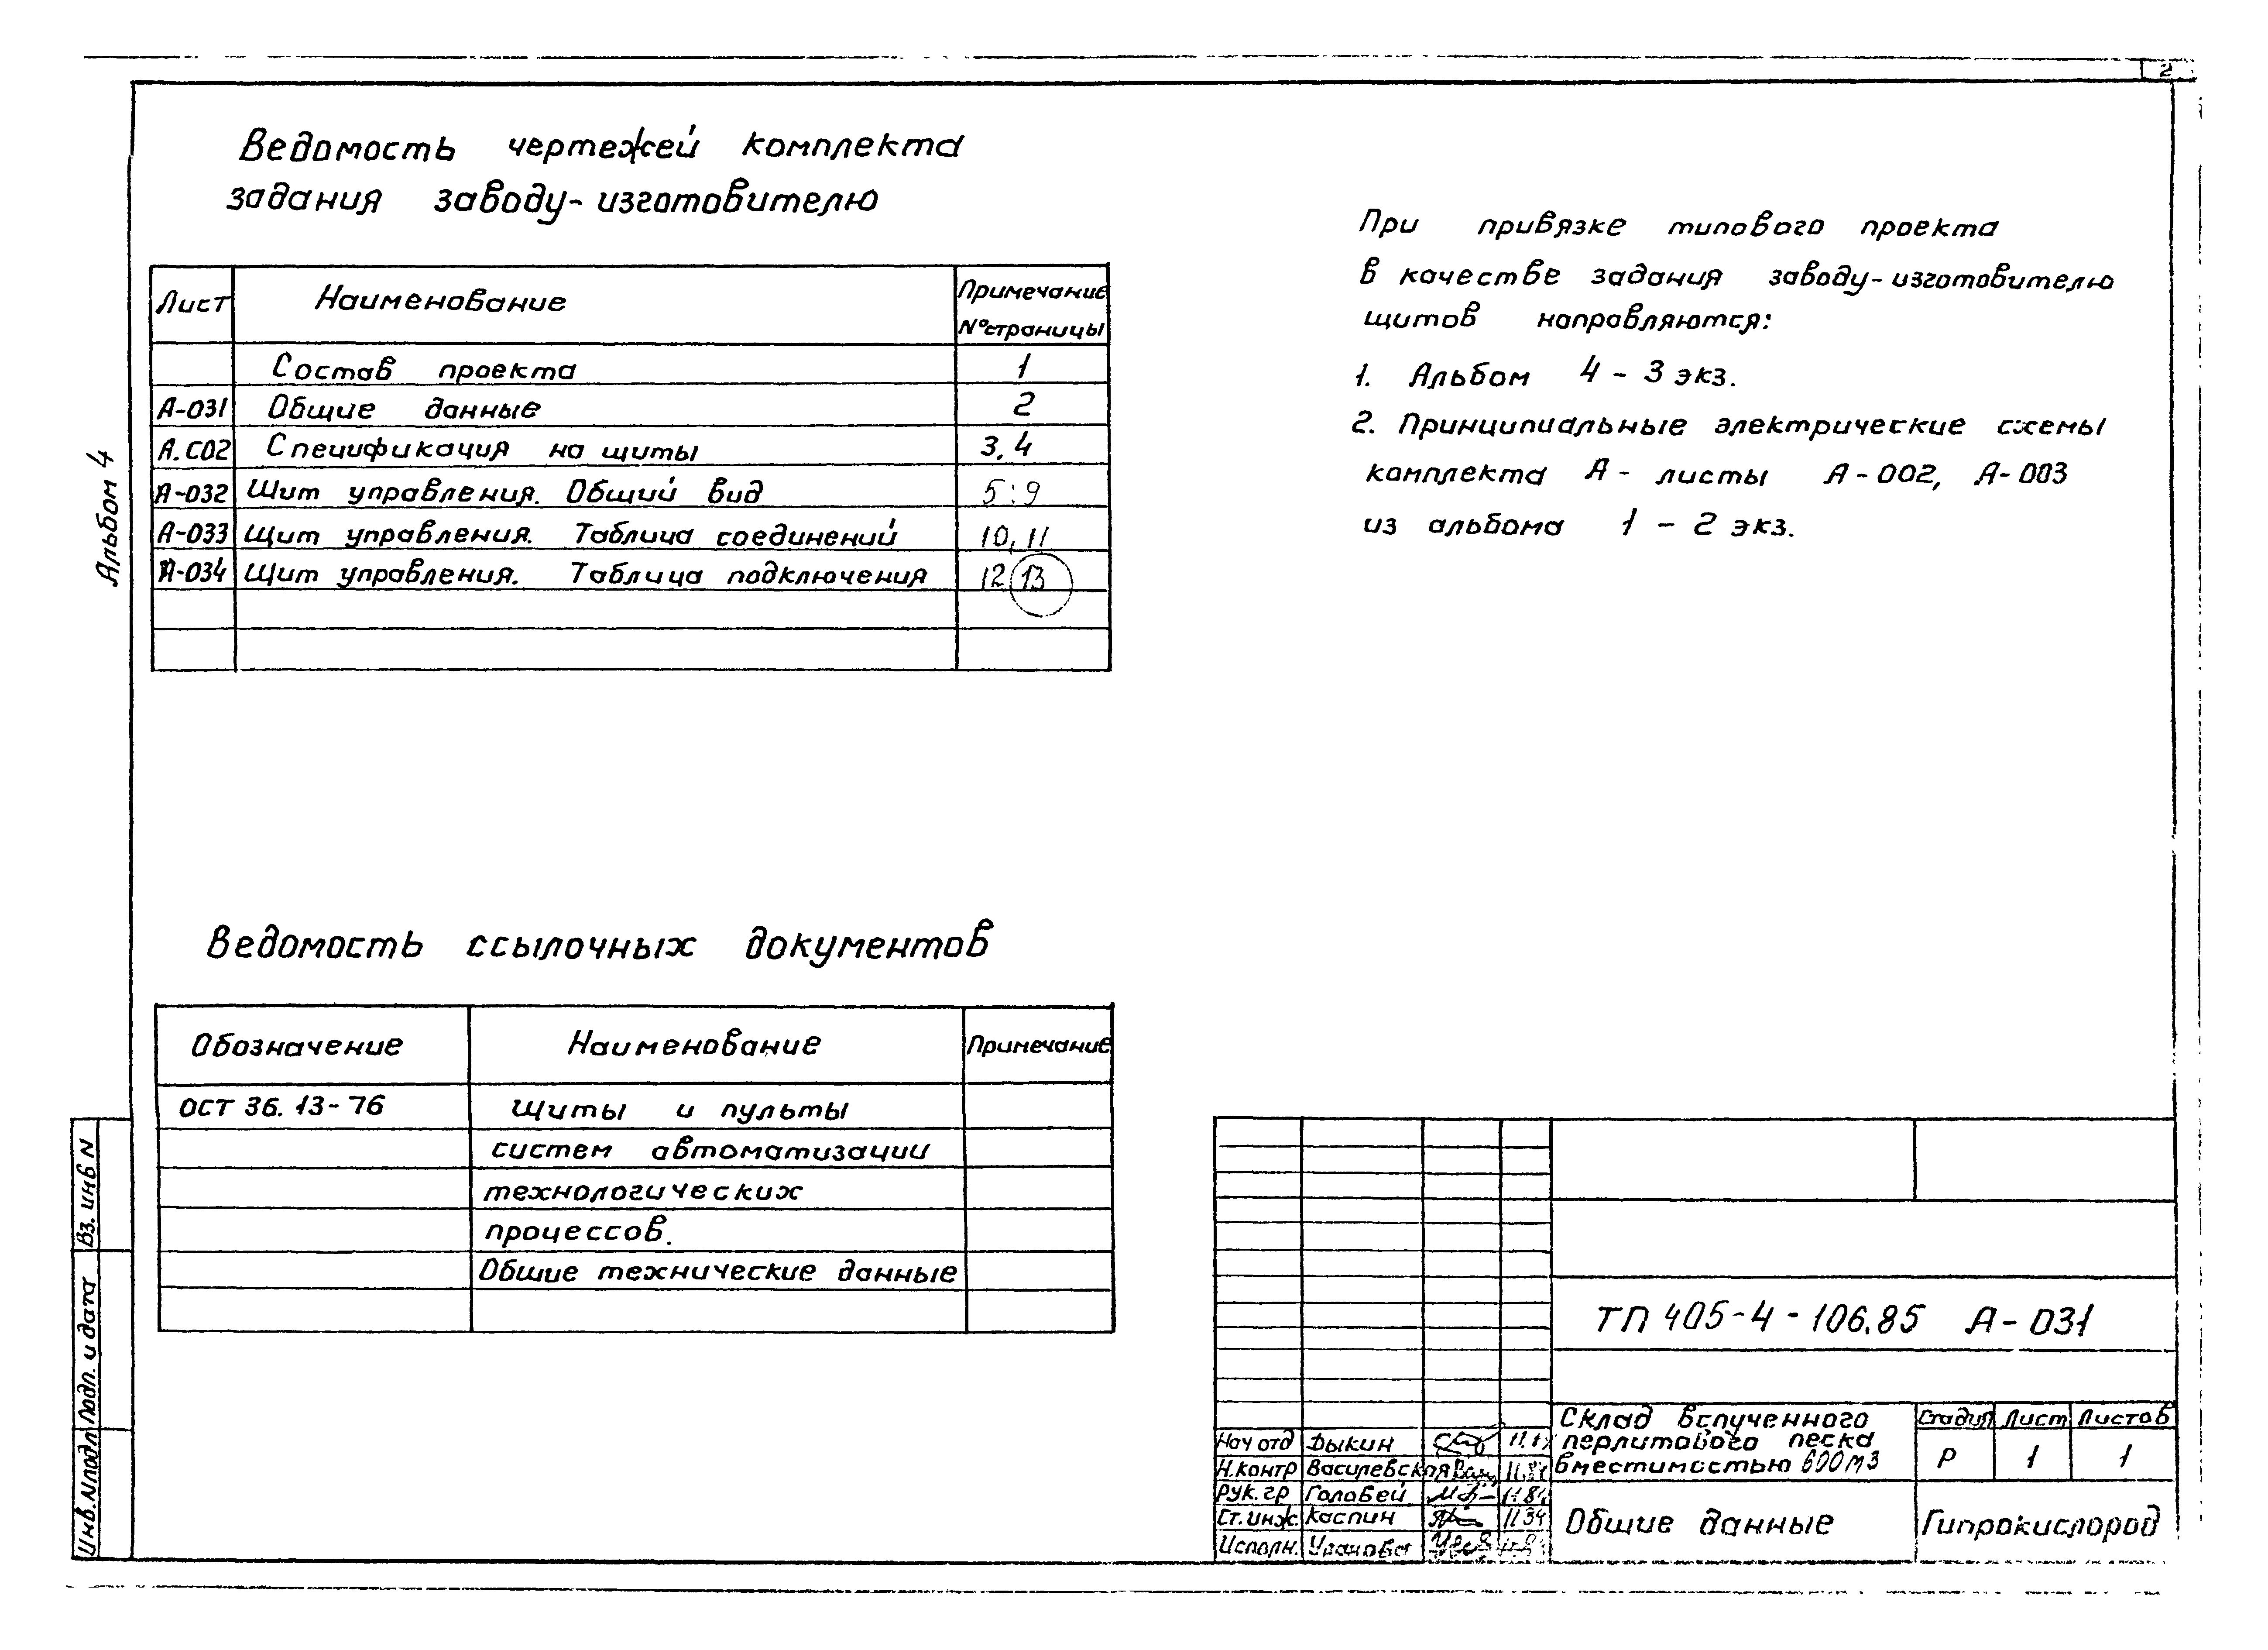 2
Ведомость чертежей комплекта
задания заводу-изготовителю
Лист Наименование Примечание №страницы
Состав проекта 1
А-031 Общие данные 2
А.С02 Спецификация на щиты 3,4
А-032 Щит управления. Общий вид 5:9
А-033 Щит управления. Таблица соединений 10,11
А-034 Щит управления. Таблица подключения 12,13
При привязке типового проекта
в качестве задания заводу-изготовителю
щитов направляются:
1. Альбом 4 - 3 экз.
2. Принципиальные электрические схемы
комплекта А - листы А-002, А-003
из альбома 1 - 2 экз.
Альбом 4
Ведомость ссылочных документов
Обозначение Наименование Примечание
ОСТ 36.13-76 Щиты и пульты
систем автоматизации
технологических
процессов.
Общие технические данные
Вз. инв N
Подп. и дата
Инв. Nподл
ТП 405-4-106.85 А-031
Склад вспученного
перлитового песка
вместимостью 600м3
Стадия Лист Листов
Р 1 1
Нач отд Дыкин
Н.контр Василевская
Рук.гр Головей
Ст.инж. Каспин
Исполн.
Общие данные
Гипрокислород